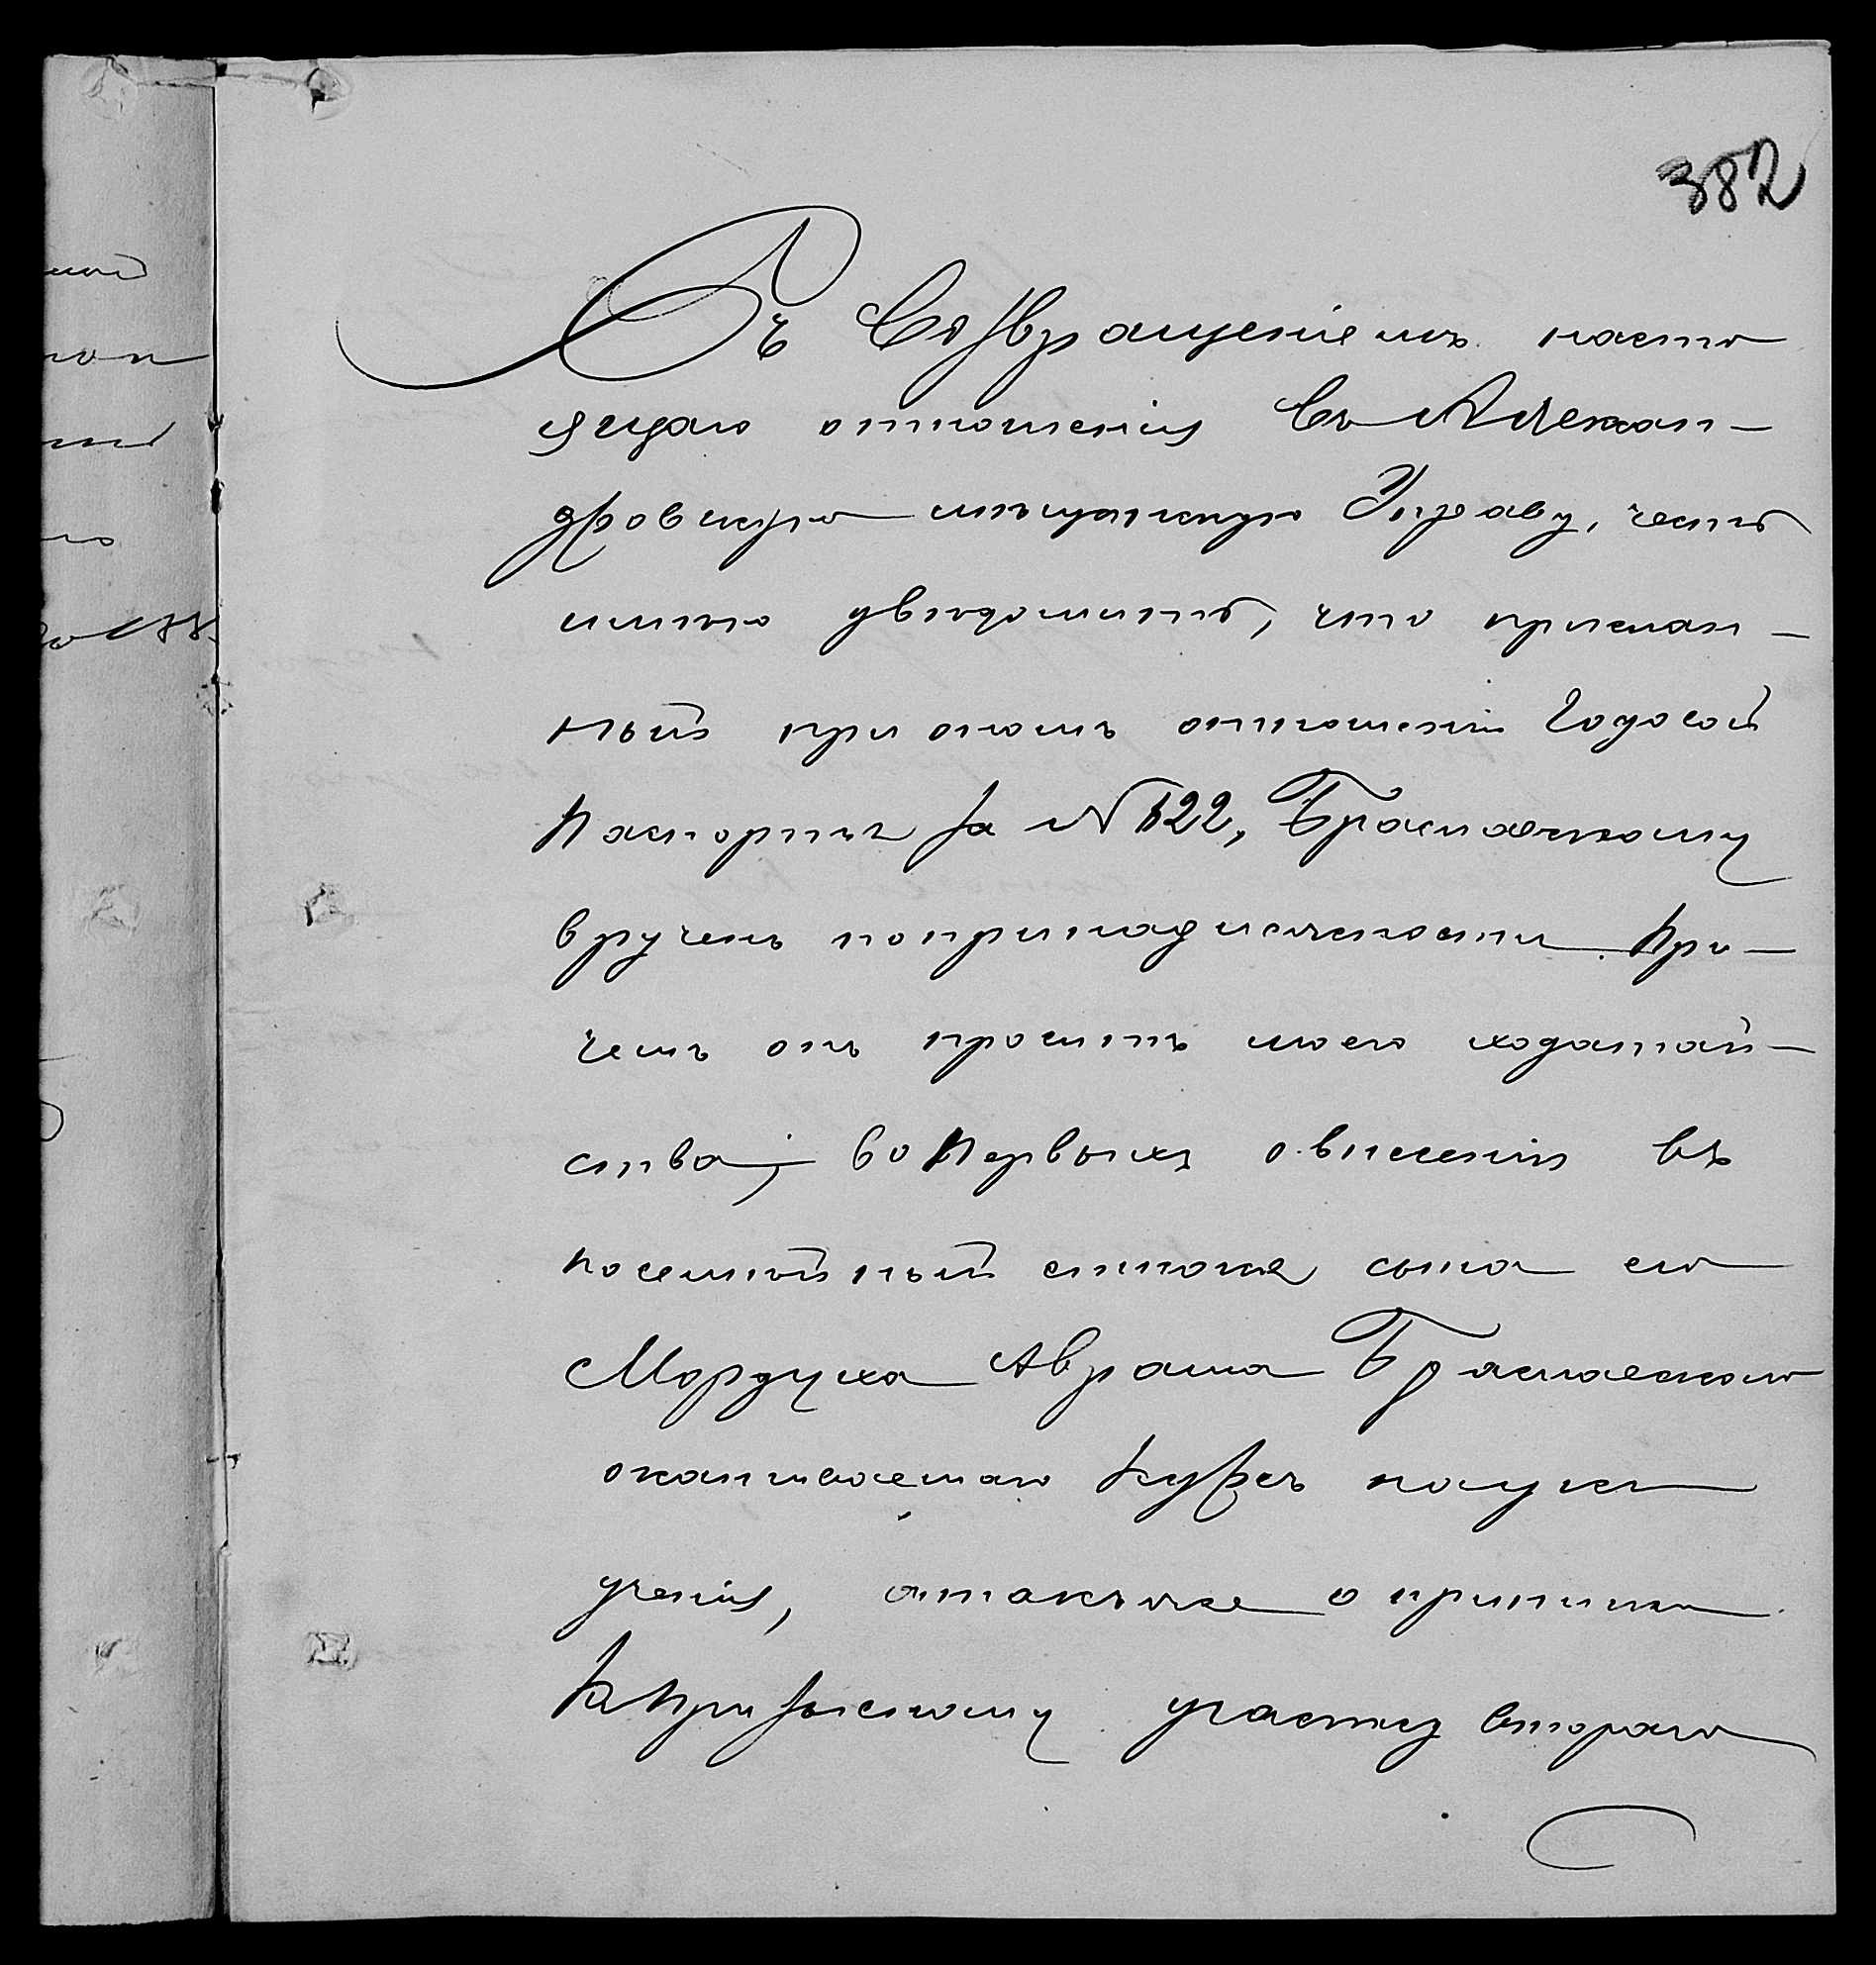 382
Съ Возвращеніемъ насто
ящаго отношенія Въ Алексан-
дровскую мѣщанскую Управу, честь
имѣю увѣдомить, что прислан-
ный при ономъ отношеніи Годовой
Паспортъ за № 122, Браславскому
врученъ по принадлежности. При-
чемъ онъ проситъ моего ходатай-
ства; во Первыхъ о внесеніи въ
посемейный списокъ сына его
Мордуха Аврама Браславскаго
оканчиваемаго Курсъ наукъ
ученія, а также о припискѣ
КъПризывному участку втораго